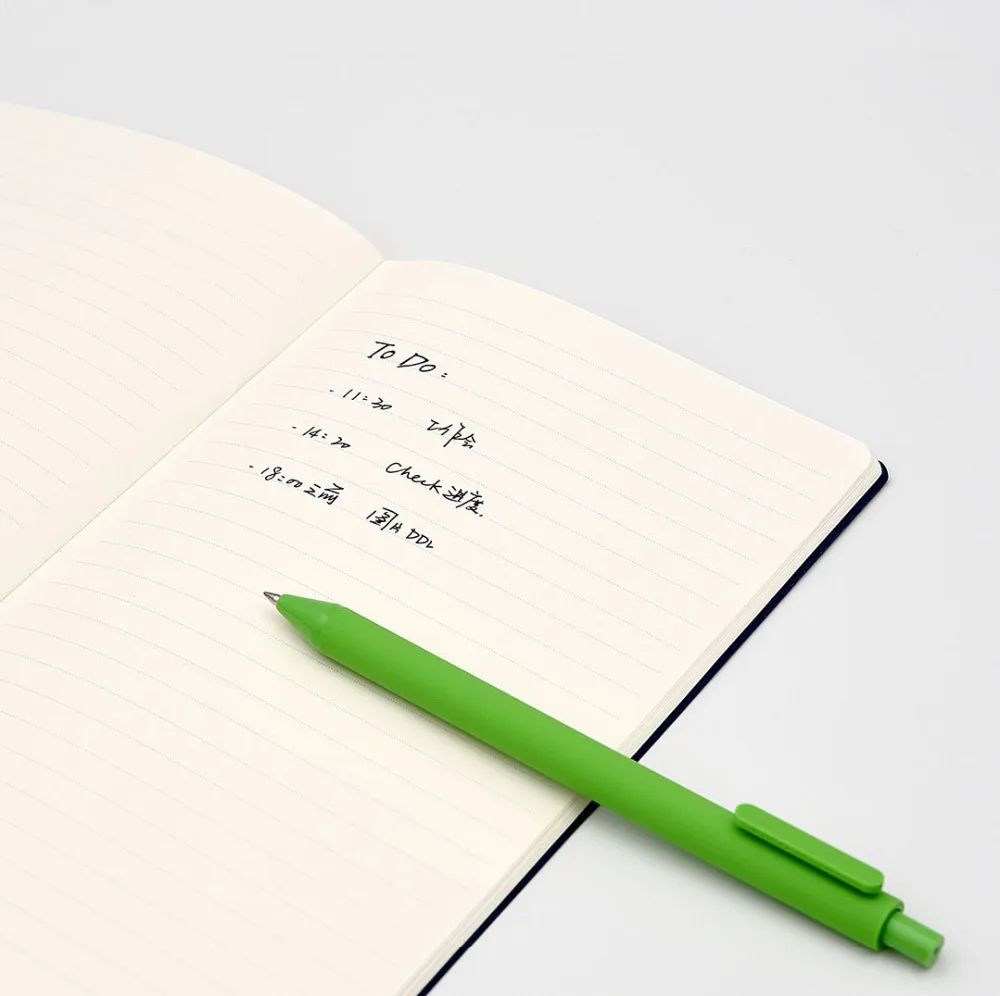 To Do:
- 11:30 工作会
- 14:20 Check 进度.
- 18:00之前 图片DDL